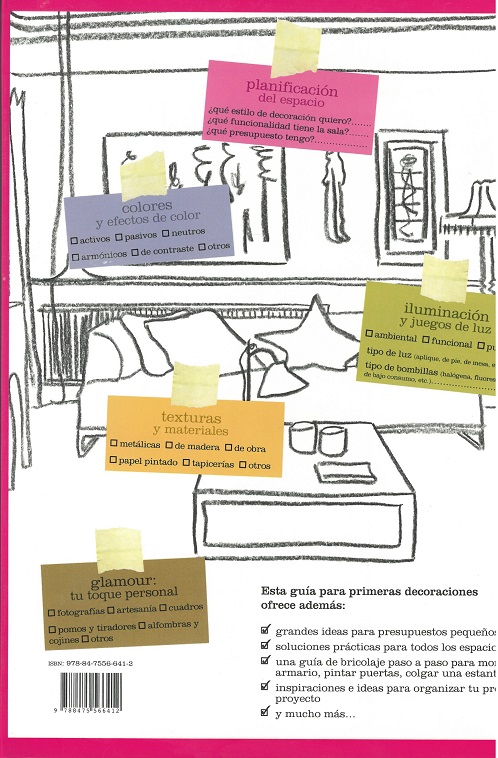 planificación
del espacio
¿qué estilo de decoración quiero?......
¿qué funcionalidad tiene la sala?......
¿qué presupuesto tengo?................
colores
y efectos de color
activos pasivos neutros
armónicos de contraste otros
iluminación
y juegos de luz
ambiental funcional
tipo de luz (aplique, de pie, de mesa,
tipo de bombillas (halógena,
de bajo consumo, etc.)
texturas
y materiales
metálicas de madera de obra
papel pintado tapicerías otros
glamour:
tu toque personal
fotografías artesanía cuadros
pomos y tiradores alfombras y
cojines otros
ISBN: 978-84-7556-641-2
9 788475 566412
Esta guía para primeras decoraciones
ofrece además:
grandes ideas para presupuestos pequeños
soluciones prácticas para todos los espacio
una guía de bricolaje paso a paso para mo
armario, pintar puertas, colgar una estant
inspiraciones e ideas para organizar tu pr
proyecto
y mucho más...